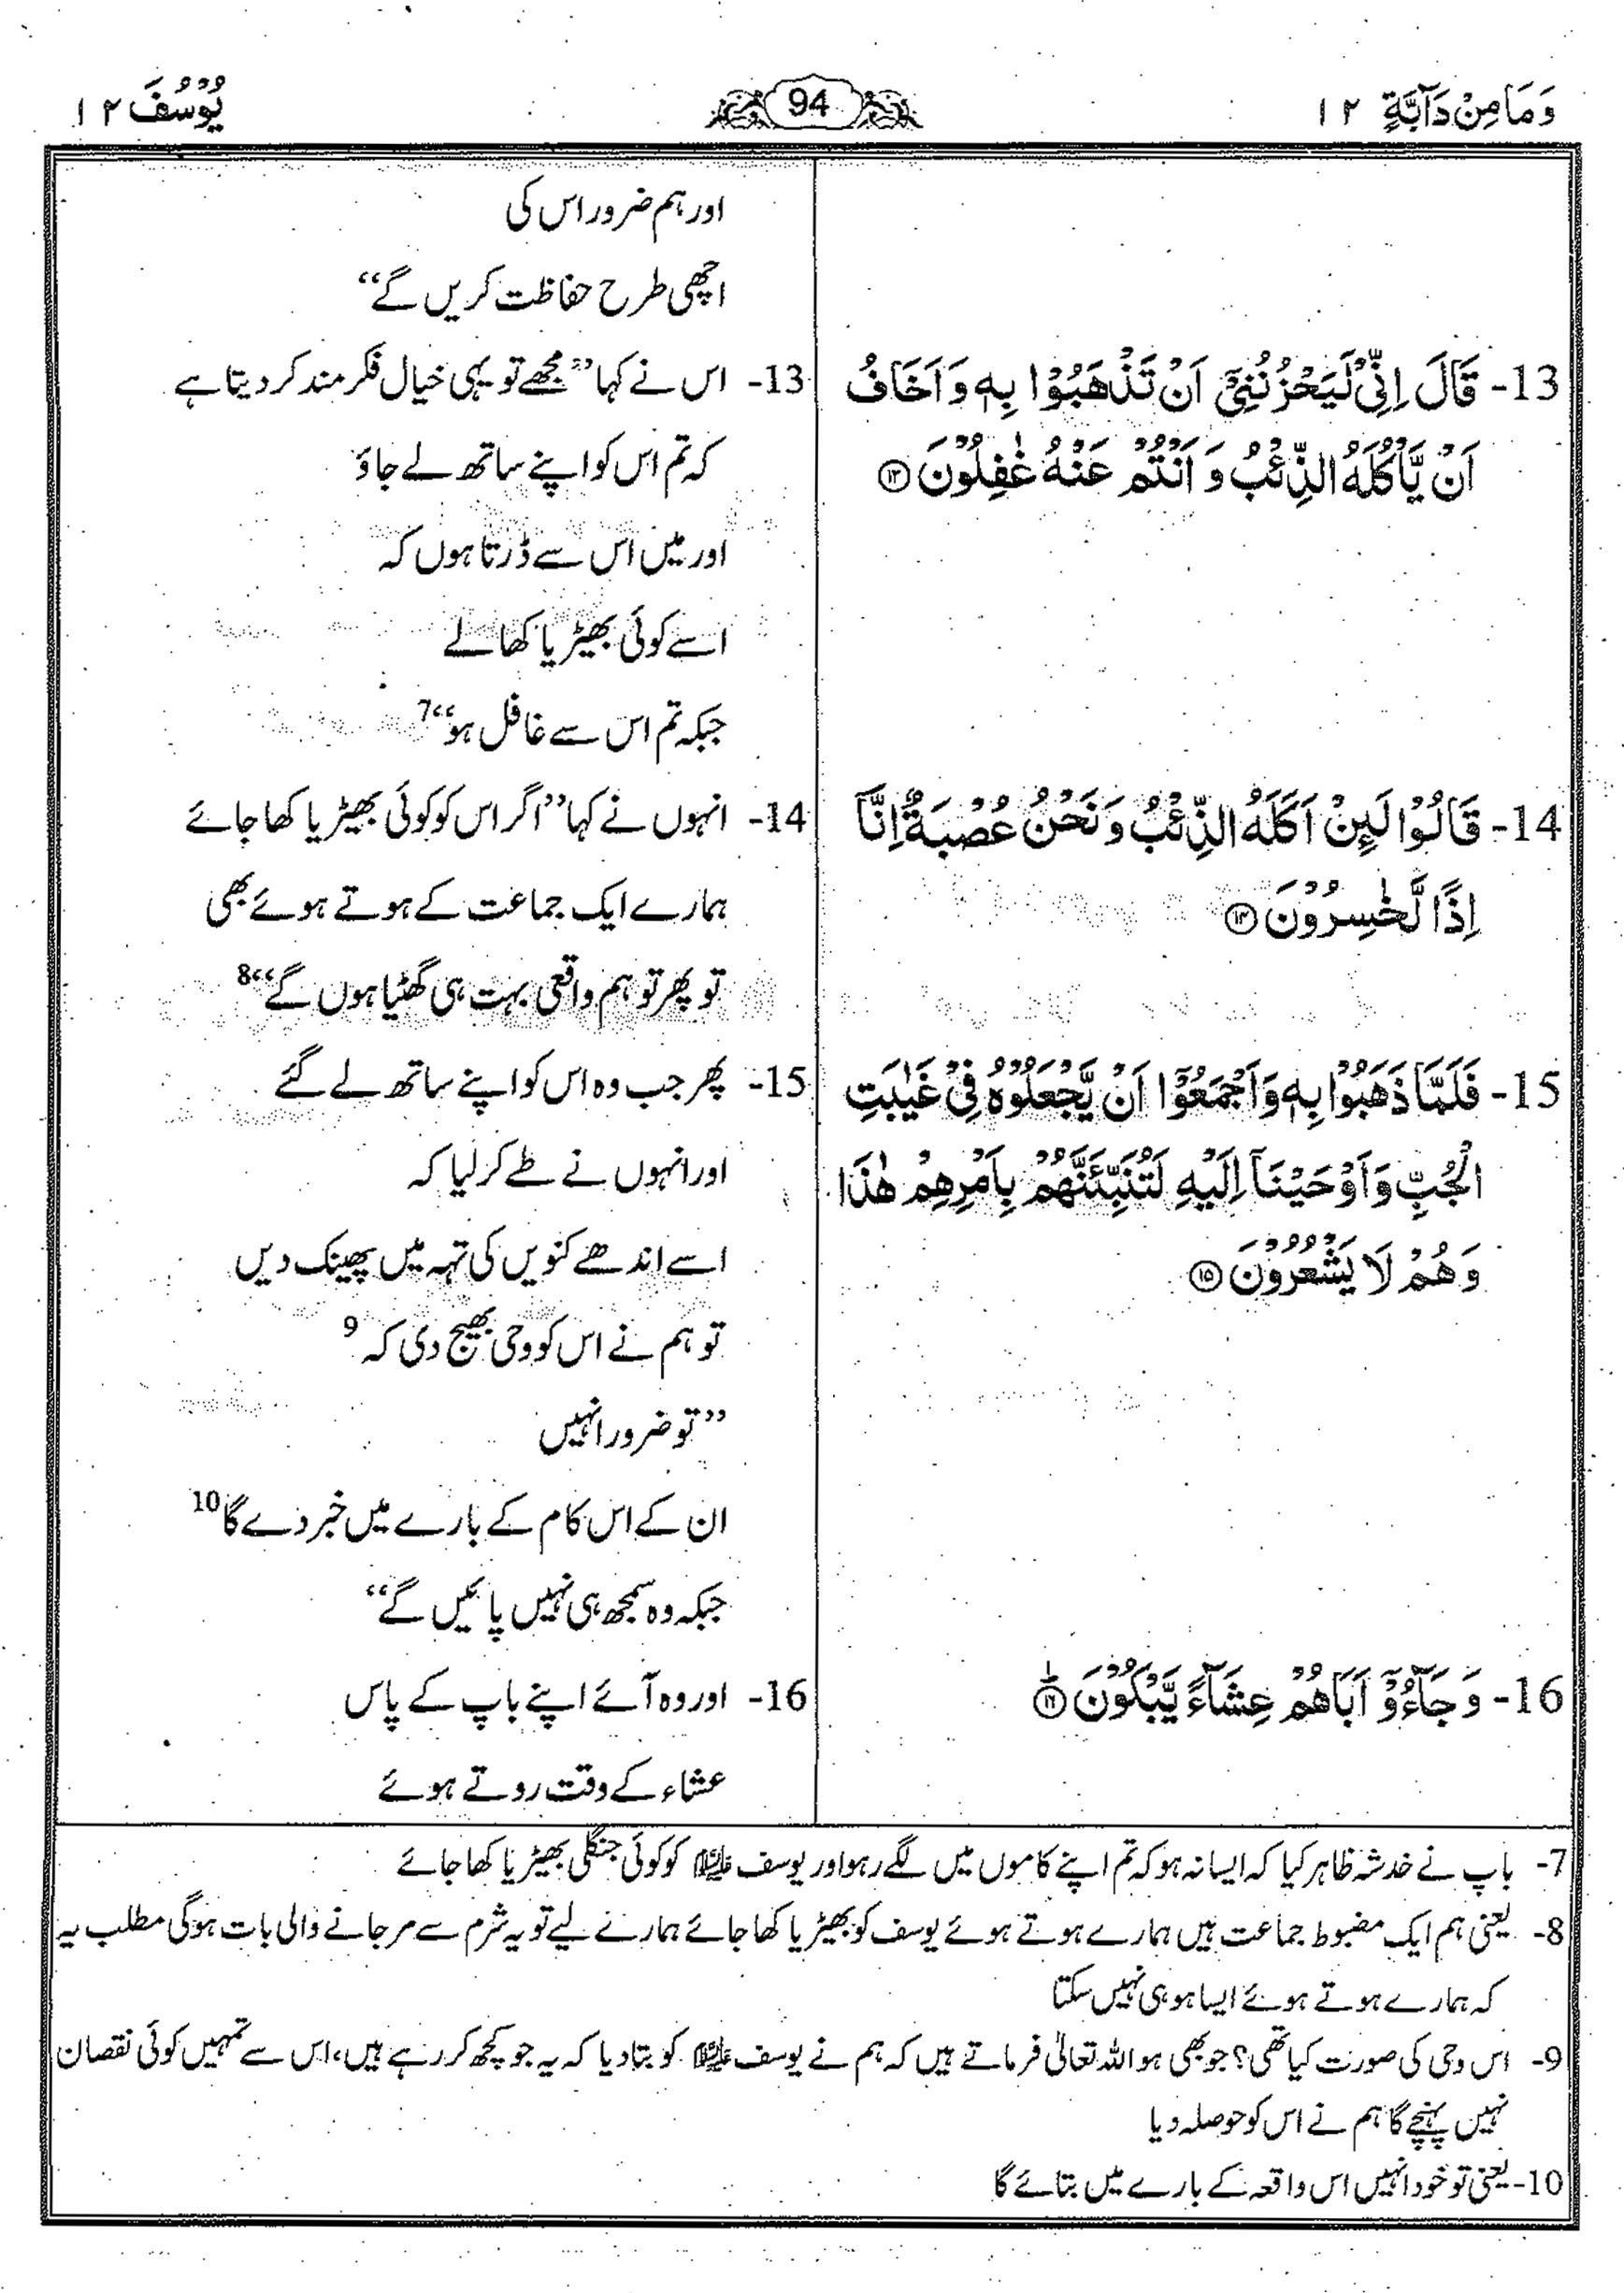 وَمَا مِنْ دَآبَّةٍ ۱۲
94
يُوْسُفَ ۱۲
اور ہم ضرور اس کی
اچھی طرح حفاظت کریں گے“
13- قَالَ اِنِّىْ لَيَحْزُنُنِىْٓ اَنْ تَذْهَبُوْا بِهٖ وَاَخَافُ
اَنْ يَّاْكُلَهُ الذِّئْبُ وَ اَنْتُمْ عَنْهُ غٰفِلُوْنَ ۝۱۳
13- اس نے کہا ”مجھے تو یہی خیال فکر مند کر دیتا ہے
کہ تم اس کو اپنے ساتھ لے جاؤ
اور میں اس سے ڈرتا ہوں کہ
اسے کوئی بھیڑیا کھا لے
جبکہ تم اس سے غافل ہو“7
14- قَالُوْا لَىِٕنْ اَكَلَهُ الذِّئْبُ وَنَحْنُ عُصْبَةٌ اِنَّآ
اِذًا لَّخٰسِرُوْنَ ۝۱۴
14- انہوں نے کہا ”اگر اس کو کوئی بھیڑیا کھا جائے
ہمارے ایک جماعت کے ہوتے ہوئے بھی
تو پھر تو ہم واقعی بہت ہی گھٹیا ہوں گے“8
15- فَلَمَّا ذَهَبُوْا بِهٖ وَاَجْمَعُوْٓا اَنْ يَّجْعَلُوْهُ فِىْ غَيٰبَتِ
الْجُبِّ وَاَوْحَيْنَآ اِلَيْهِ لَتُنَبِّئَنَّهُمْ بِاَمْرِهِمْ هٰذَا
وَهُمْ لَا يَشْعُرُوْنَ ۝۱۵
15- پھر جب وہ اس کو اپنے ساتھ لے گئے
اور انہوں نے طے کر لیا کہ
اسے اندھے کنویں کی تہہ میں پھینک دیں
تو ہم نے اس کو وحی بھیج دی کہ 9
”تو ضرور انہیں
ان کے اس کام کے بارے میں خبر دے گا10
جبکہ وہ سمجھ ہی نہیں پائیں گے“
16- وَ جَآءُوْٓ اَبَاهُمْ عِشَآءً يَّبْكُوْنَ ۝۱۶ؕ
16- اور وہ آئے اپنے باپ کے پاس
عشاء کے وقت روتے ہوئے
7- باپ نے خدشہ ظاہر کیا کہ ایسا نہ ہو کہ تم اپنے کاموں میں لگے رہو اور یوسف علیہ السلام کو کوئی جنگلی بھیڑیا کھا جائے
8- یعنی ہم ایک مضبوط جماعت ہیں ہمارے ہوتے ہوئے یوسف کو بھیڑیا کھا جائے ہمارے لیے تو یہ شرم سے مر جانے والی بات ہوگی مطلب یہ
کہ ہمارے ہوتے ہوئے ایسا ہو ہی نہیں سکتا
9- اس وحی کی صورت کیا تھی؟ جو بھی ہو اللہ تعالیٰ فرماتے ہیں کہ ہم نے یوسف علیہ السلام کو بتا دیا کہ یہ جو کچھ کر رہے ہیں، اس سے تمہیں کوئی نقصان
نہیں پہنچے گا ہم نے اس کو حوصلہ دیا
10- یعنی تو خود انہیں اس واقعہ کے بارے میں بتائے گا